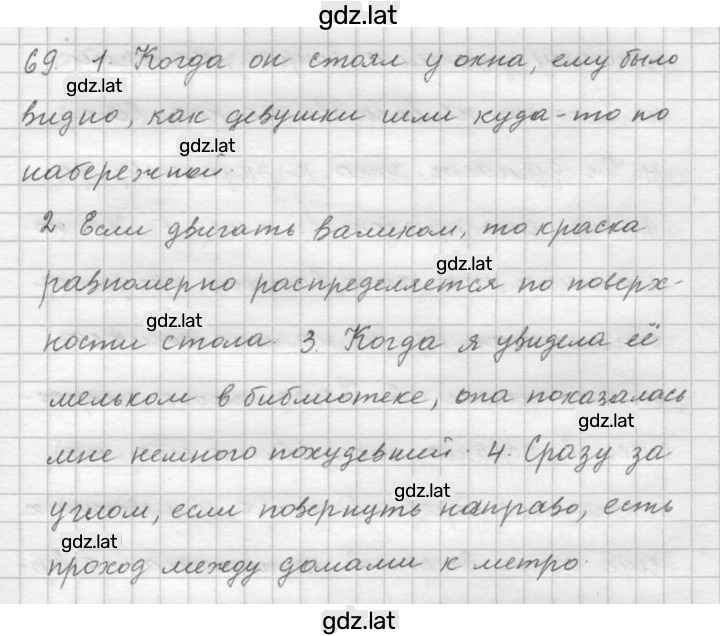 gdz.lat
69. 1. Когда он стоял у окна, ему было
gdz.lat
видно, как девушки шли куда-то по
gdz.lat
набережной.
2. Если двигать валиком, то краска
gdz.lat
равномерно распределяется по поверх-
gdz.lat
ности стола. 3. Когда я увидела её
мельком в библиотеке, она показалась
gdz.lat
мне немного похудевший. 4. Сразу за
gdz.lat
углом, если повернуть направо, есть
gdz.lat
проход между домами к метро.
gdz.lat